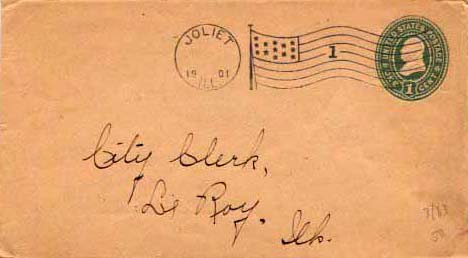 JOLIET
1901
ILL.
1
U.S. UNITED STATES POSTAGE
1 CENT
City Clerk,
Le Roy,
Ills.